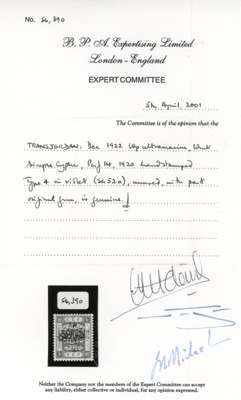 No. 56,390
B. P. A. Expertising Limited
London - England
EXPERT COMMITTEE
5th April, 2001
The Committee is of the opinion that the
TRANSJORDAN: Dec 1922 ultramarine,
Perf 14, 1920 handstamped
Type 4 in violet (SG 52a), unused, with part
original gum, is genuine.
56,390
Neither the Company nor the members of the Expert Committee can accept
any liability, either collective or individual, for any opinion expressed.